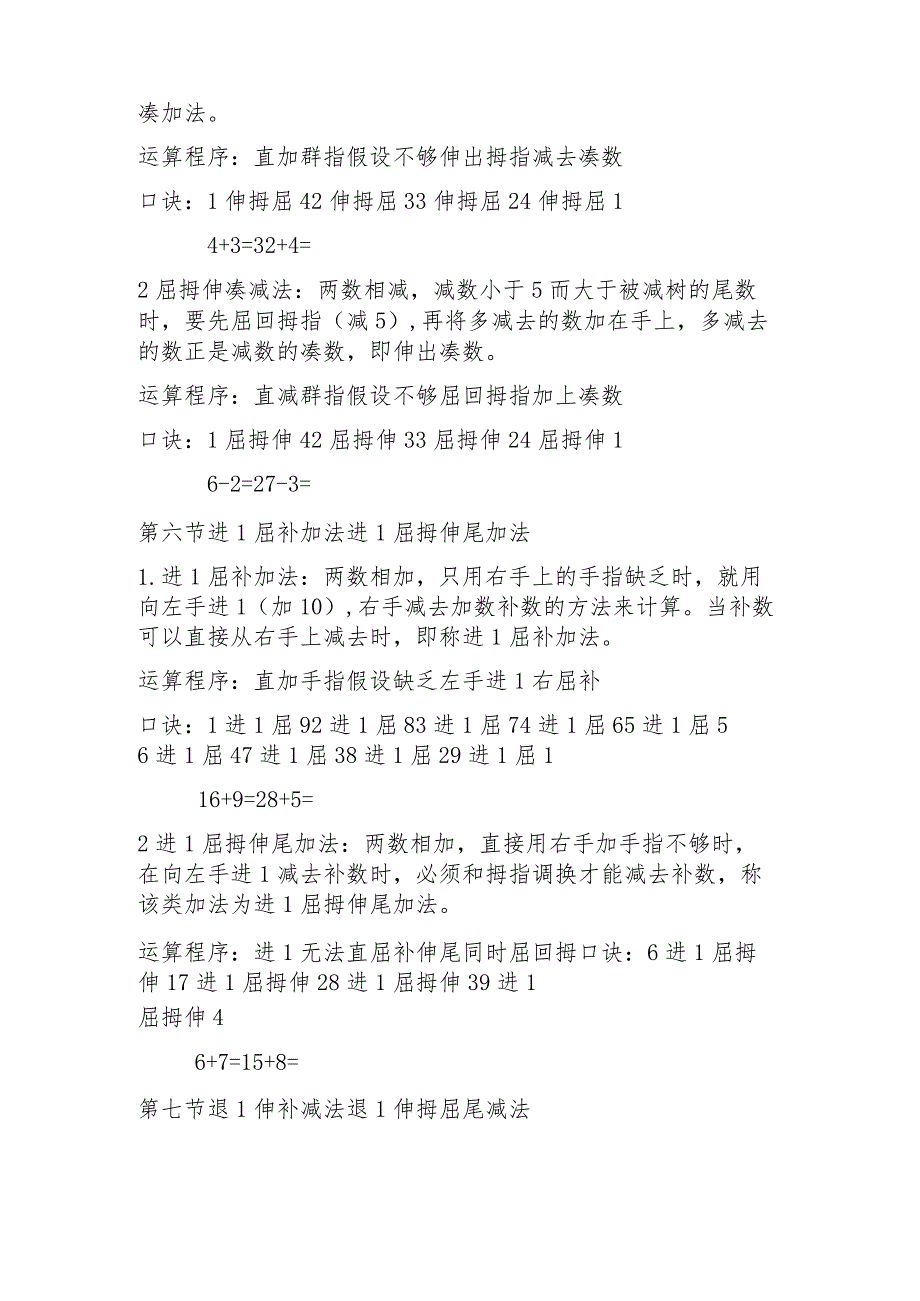 凑加法。
运算程序：直加群指假设不够伸出拇指减去凑数
口诀：1伸拇屈42伸拇屈33伸拇屈24伸拇屈1
4+3=32+4=
2屈拇伸凑减法：两数相减，减数小于5而大于被减树的尾数
时，要先屈回拇指（减5）,再将多减去的数加在手上，多减去
的数正是减数的凑数，即伸出凑数。
运算程序：直减群指假设不够屈回拇指加上凑数
口诀：1屈拇伸42屈拇伸33屈拇伸24屈拇伸1
6-2=27-3=
第六节进1屈补加法进1屈拇伸尾加法
1.进1屈补加法：两数相加，只用右手上的手指缺乏时，就用
向左手进1（加10）,右手减去加数补数的方法来计算。当补数
可以直接从右手上减去时，即称进1屈补加法。
运算程序：直加手指假设缺乏左手进1右屈补
口诀：1进1屈92进1屈83进1屈74进1屈65进1屈5
6进1屈47进1屈38进1屈29进1屈1
16+9=28+5=
2进1屈拇伸尾加法：两数相加，直接用右手加手指不够时，
在向左手进1减去补数时，必须和拇指调换才能减去补数，称
该类加法为进1屈拇伸尾加法。
运算程序：进1无法直屈补伸尾同时屈回拇口诀：6进1屈拇
伸17进1屈拇伸28进1屈拇伸39进1
屈拇伸4
6+7=15+8=
第七节退1伸补减法退1伸拇屈尾减法